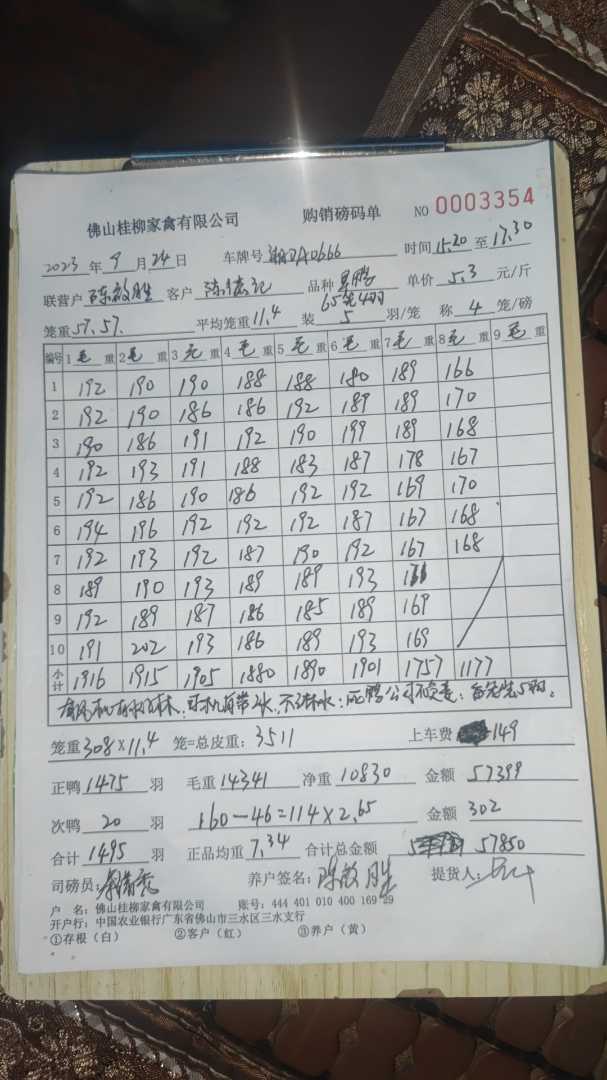 佛山桂柳家禽有限公司 购销磅码单 NO 0003354
2023年9月24日 车牌号 湘DA0666 时间 15.20 至 17.30
联营户 陈敏胜 客户 品种 单价 5.3 元/斤
笼重 57.57. 平均笼重 11.4 装 5 羽/笼 称 4 笼/磅
编号 1毛重 2毛重 3毛重 4毛重 5毛重 6毛重 7毛重 8毛重 9毛重
1 192 190 190 188 188 180 189 166
2 192 190 186 186 192 189 189 170
3 190 186 191 192 190 199 189 168
4 192 193 191 188 183 187 178 167
5 192 186 190 186 192 192 169 170
6 194 196 192 192 192 187 167 168
7 192 193 192 187 190 192 167 168
8 189 190 193 189 189 193 166
9 192 189 187 186 185 189 169
10 191 202 193 186 189 193 169
小计 1916 1915 1905 1880 1890 1901 1757 1177
笼重 308×11.4 笼=总皮重: 3511 上车费 149
正鸭 1475 羽 毛重 14341 净重 10830 金额 57399
次鸭 20 羽 160-46=114×2.65 金额 302
合计 1495 羽 正品均重 7.34 合计总金额 57850
司磅员: 养户签名: 陈敏胜 提货人:
户 名: 佛山桂柳家禽有限公司 账号: 444 401 010 400 169 29
开户行: 中国农业银行广东省佛山市三水区三水支行
①存根（白） ②客户（红） ③养户（黄）